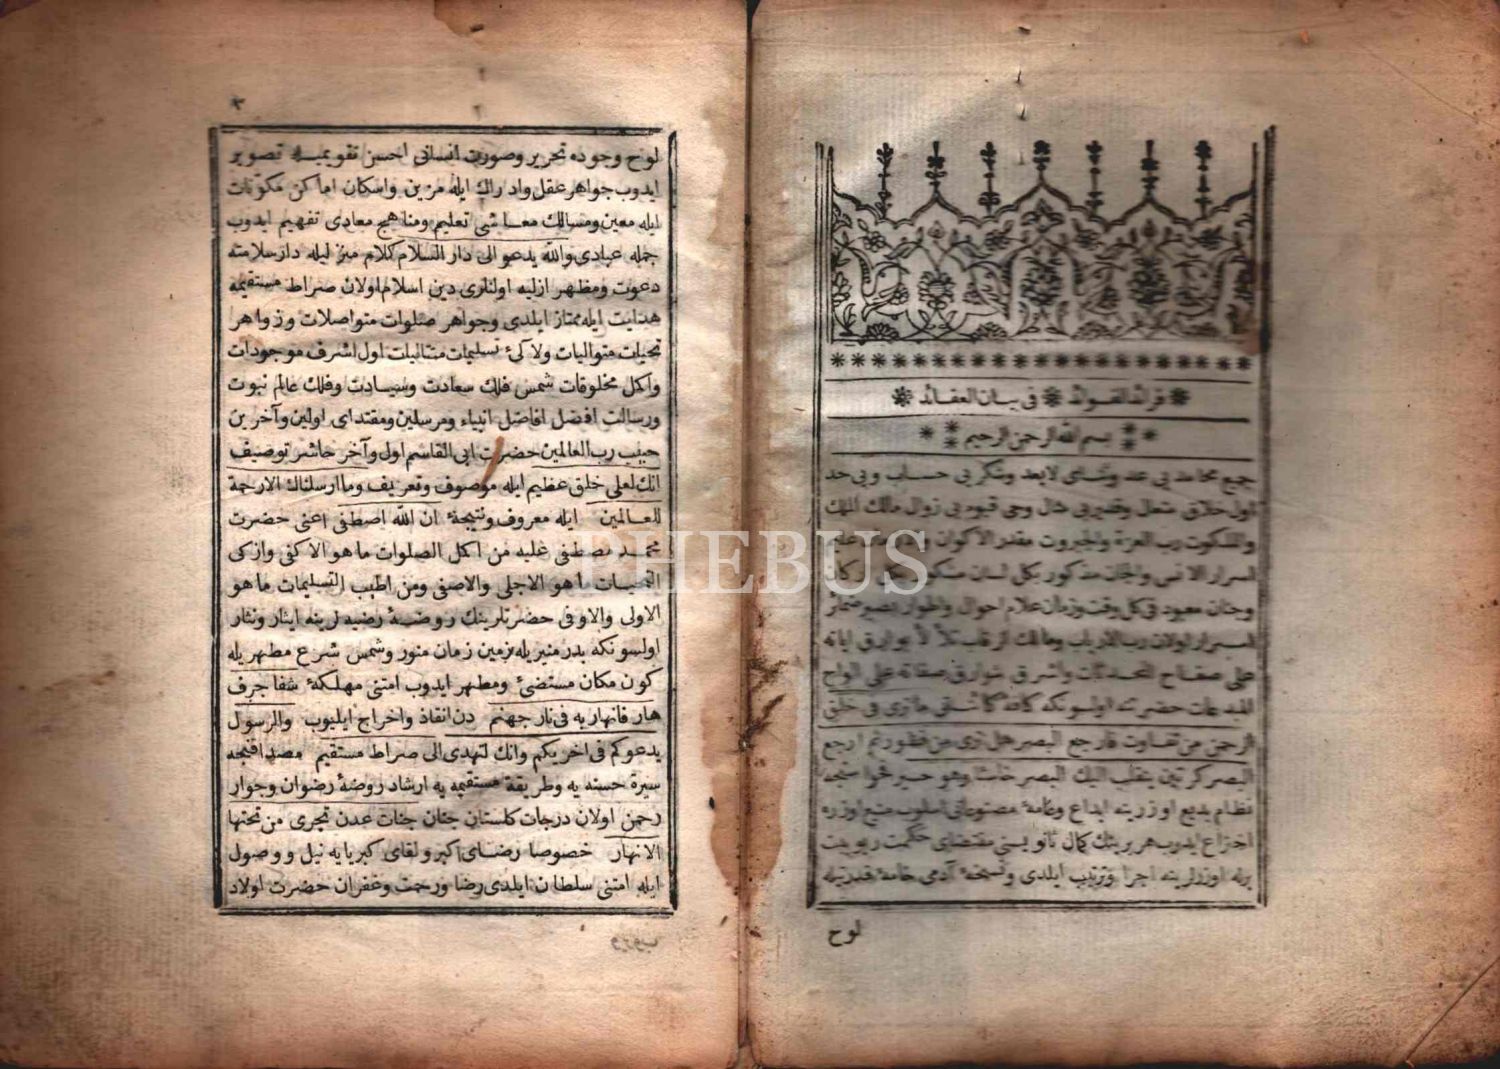 فرائد الفوائد في بيان العقائد
بسم الله الرحمن الرحيم
جميع محامد بى عد وثناى لا يعد وشكر بى حساب وبى حد
زوال مالك الملك
والملكوت رب العزة والجبروت مقدر الاكوان
اسرار الانس والجان مذكور بكل لسان
وجنان معبود فى كل وقت وزمان علام احوال واطوار بصير ضمائر
اسرار اولان رب الارباب ومالك
على صفاح المحدثات واشرق شوارق صفاته على الواح
المبدعات حضرتنه اولسونكه ما ترى فى خلق
الرحمن من تفاوت فارجع البصر هل ترى من فطور ثم ارجع
البصر كرتين ينقلب اليك البصر خاسئا وهو حسير
نظام بديع اوزرينه ابداع وعامهٔ مصنوعاتى اسلوب منيع اوزره
اختراع ايدوب هر برينك كمال مقتضاى حكمت ربوبيت
اوزرلرينه اجرا وترتيب ايلدى ونسخهٔ آدمى خامهٔ قدرتيله
لوح
٣
لوح وجوده تحرير وصورت انسانى احسن تقويميله تصوير
ايدوب جواهر عقل وادراك ايله مزين واسكان اماكن مكونات
ايله معين ومسالك معاشى تعليم ومناهج معادى تفهيم ايدوب
جمله عبادى والله يدعو الى دار السلام كلام ليله دار سلامته
دعوت ومظهر ازليه اولنلرى دين اسلام اولان صراط مستقيمه
هدايت ايله ممتاز ايلدى وجواهر صلوات متواصلات وزواهر
تحيات متواليات ولآلئ تسليمات متتاليات اول اشرف موجودات
واكمل مخلوقات شمس فلك سعادت وسيادت وفلك عالم نبوت
ورسالت افضل افاضل انبياء ومرسلين ومقتداى اولين وآخرين
حبيب رب العالمين حضرت ابى القاسم اول وآخر حاشر توصيف
انك لعلى خلق عظيم ايله موصوف وتعريف وما ارسلناك الا رحمة
للعالمين ايله معروف ونتيجهٔ ان الله اصطفى اعنى حضرت
محمد مصطفى عليه من اكمل الصلوات ما هو الاكفى وازكى
التحيات ما هو الاجلى والاصفى ومن اطيب التسليمات ما هو
الاولى والاوفى حضرتلرينك روضهٔ رضيه لرينه ايثار ونثار
اولسونكه بدر منيريله زمين زمان منور وشمس شرع مطهريله
كون مكان مستضئ ومطهر ايدوب امتنى مهلكهٔ شفا جرف
هار فانهار به فى نار جهنم دن انقاذ واخراج ايليوب والرسول
يدعوكم فى اخريكم وانك لتهدى الى صراط مستقيم مصداقنجه
سيرة حسنه يه وطريقهٔ مستقيمه يه ارشاد روضهٔ رضوان وجوار
رحمن اولان درجات كلستان جنان جنات عدن تجرى من تحتها
الانهار خصوصا رضاى اكبر ولقاى كبريايه نيل ووصول
ايله امتنى سلطان ايلدى رضا ورحمت وغفران حضرت اولاد
PHEBUS